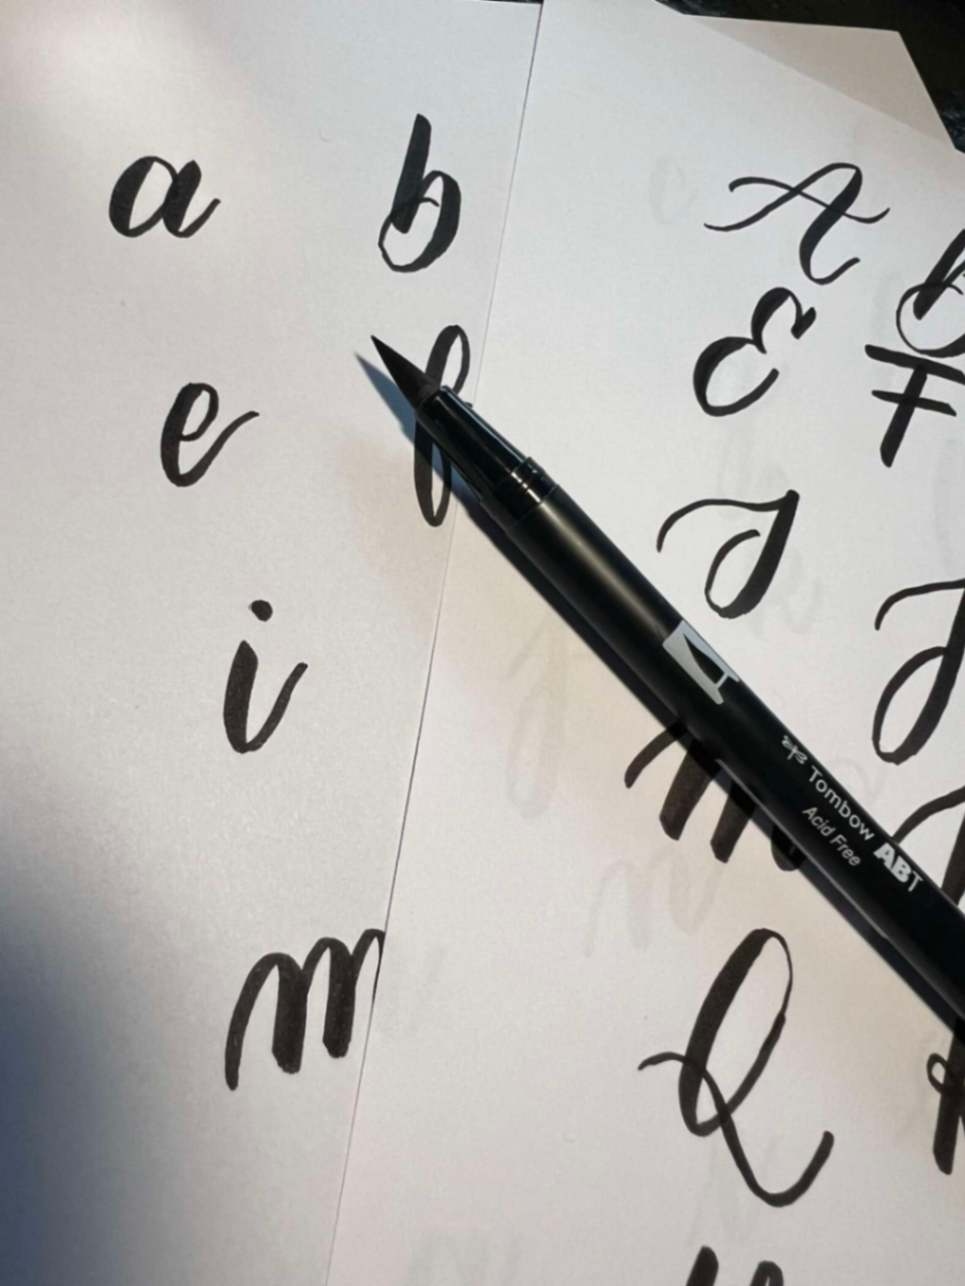 a b
e f
i
m
A B
E F
I J
M
Q
Tombow ABT
Acid Free